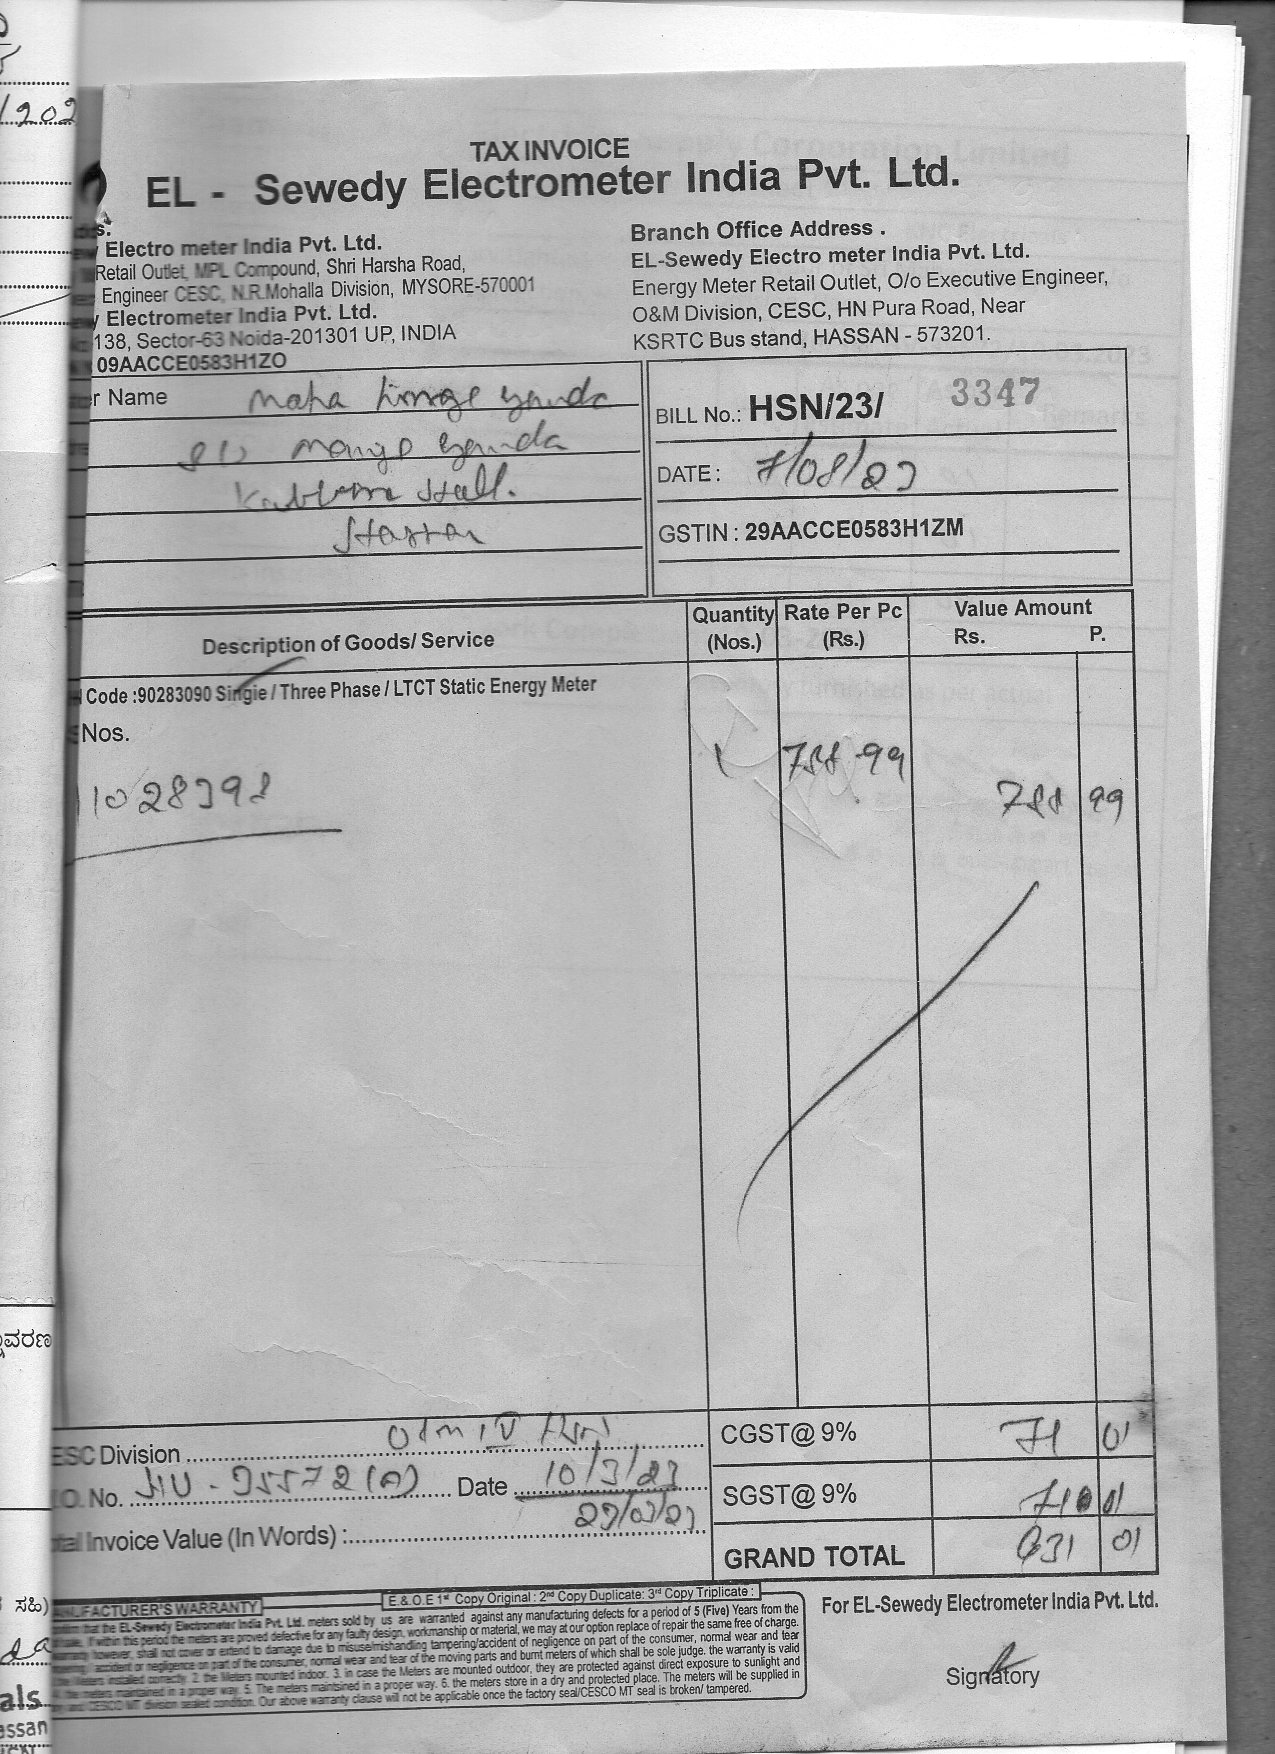 /202
TAX INVOICE
EL - Sewedy Electrometer India Pvt. Ltd.
Electro meter India Pvt. Ltd.
Retail Outlet, MPL Compound, Shri Harsha Road,
Engineer CESC, N.R.Mohalla Division, MYSORE-570001
Electrometer India Pvt. Ltd.
138, Sector-63 Noida-201301 UP, INDIA
09AACCE0583H1ZO
Branch Office Address .
EL-Sewedy Electro meter India Pvt. Ltd.
Energy Meter Retail Outlet, O/o Executive Engineer,
O&M Division, CESC, HN Pura Road, Near
KSRTC Bus stand, HASSAN - 573201.
r Name
Hassan
BILL No.: HSN/23/ 3347
DATE : 7/08/23
GSTIN : 29AACCE0583H1ZM
Description of Goods/ Service
Quantity (Nos.)
Rate Per Pc (Rs.)
Value Amount
Rs. P.
Code :90283090 Single / Three Phase / LTCT Static Energy Meter
Nos.
11028398
1 788.99 788 99
ESC Division
CGST@ 9% 71 01
O. No. Date 10/3/23
SGST@ 9% 71 01
Invoice Value (In Words) :
GRAND TOTAL 931 01
E. & O.E 1st Copy Original : 2nd Copy Duplicate: 3rd Copy Triplicate :
MANUFACTURER'S WARRANTY
that the EL-Sewedy Electrometer India Pvt. Ltd. meters sold by us are warranted against any manufacturing defects for a period of 5 (Five) Years from the
If within this period the meters are proved defective for any faulty design, workmanship or material, we may at our option replace of repair the same free of charge.
however, shall not cover or extend to damage due to misuse/mishandling tampering/accident of negligence on part of the consumer, normal wear and tear
accident or negligence on part of the consumer, normal wear and tear of the moving parts and burnt meters of which shall be sole judge. the warranty is valid
Meters installed correctly 2. the Meters mounted indoor. 3. in case the Meters are mounted outdoor, they are protected against direct exposure to sunlight and
the meters maintained in a proper way. 5. The meters maintsined in a proper way. 6. the meters store in a dry and protected place. The meters will be supplied in
and CESCO MT division sealed condition. Our above warranty clause will not be applicable once the factory seal/CESCO MT seal is broken/ tampered.
For EL-Sewedy Electrometer India Pvt. Ltd.
Signatory
ವರಣ
ಸಹಿ)
als
assan